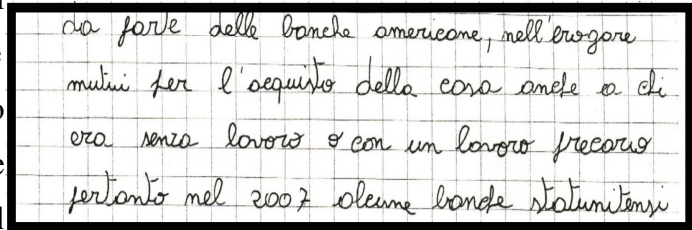 da parte delle banche americane, nell'erogare
mutui per l'acquisto della casa anche a chi
era senza lavoro o con un lavoro precario
pertanto nel 2007 alcune banche statunitensi